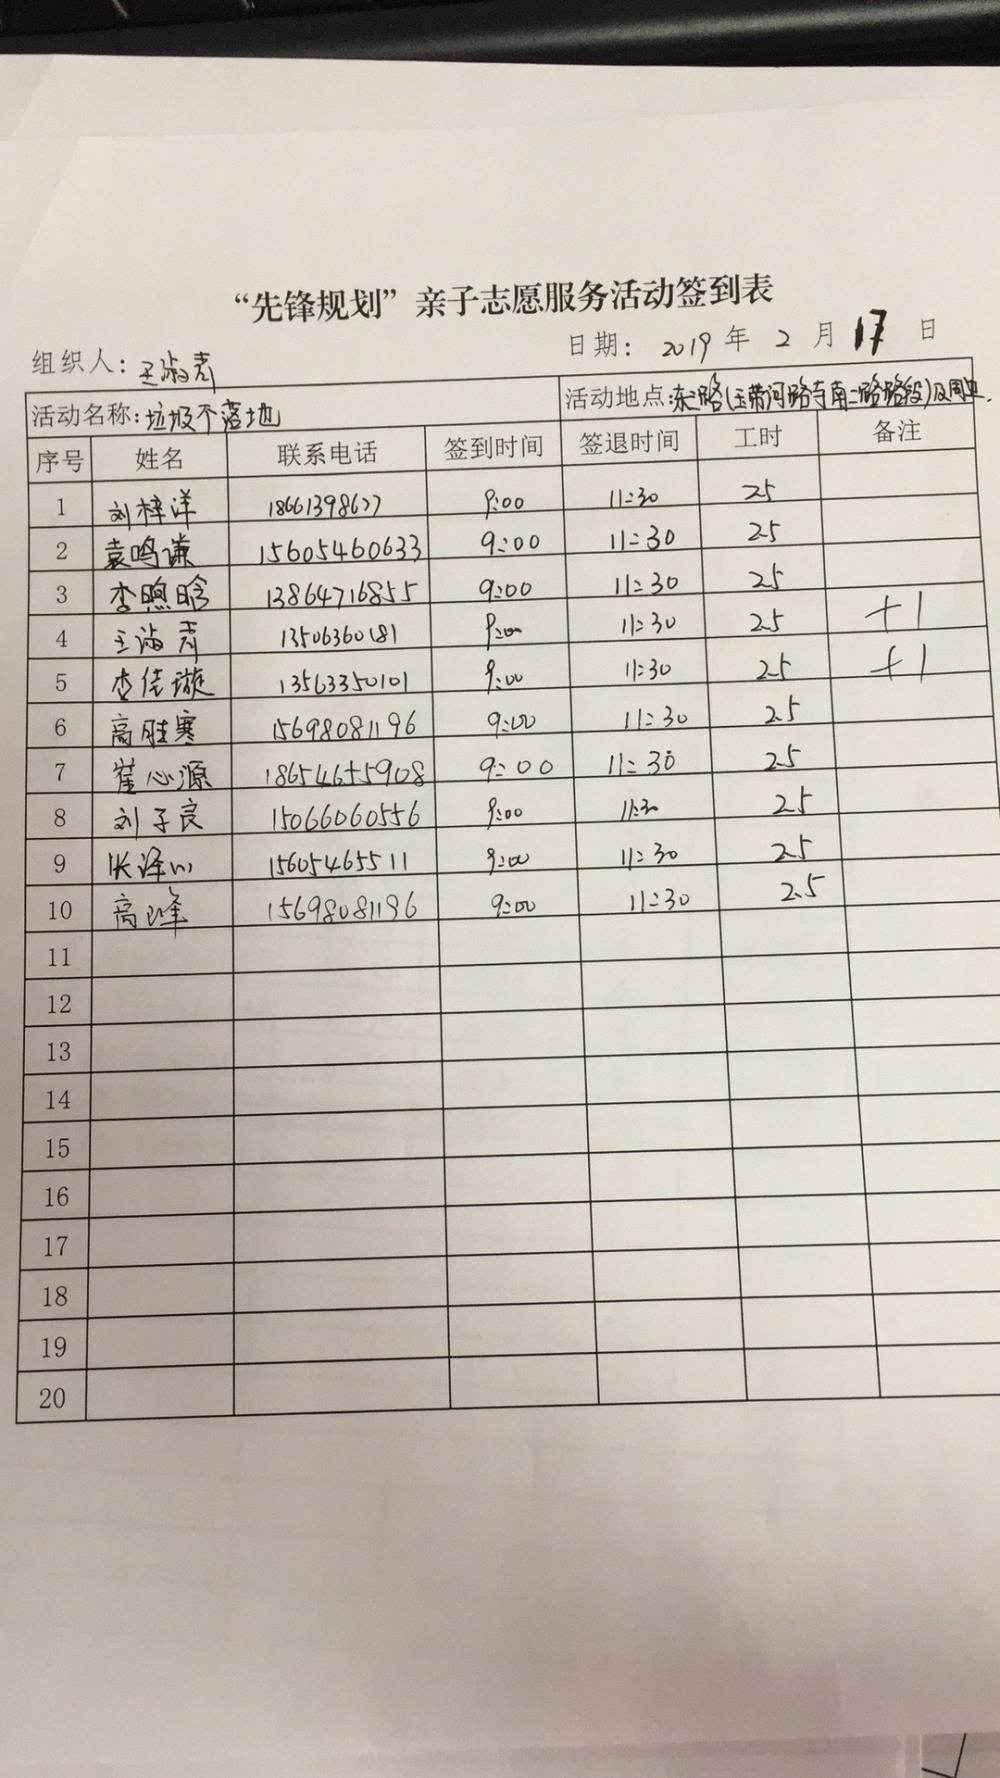 “先锋规划”亲子志愿服务活动签到表
组织人：王淑青 日期： 2019 年 2 月 17 日
活动名称：垃圾不落地 活动地点：东二路(玉带河路至南二路路段)及周边
序号 姓名 联系电话 签到时间 签退时间 工时 备注
1 刘梓洋 18661398677 9:00 11:30 2.5
2 袁鸣谦 15605460633 9:00 11:30 2.5
3 李煦晗 13864716855 9:00 11:30 2.5
4 王淑青 13506360181 9:00 11:30 2.5 +1
5 李佳璇 13563350101 9:00 11:30 2.5 +1
6 高胜寒 15698081196 9:00 11:30 2.5
7 崔心源 18654655908 9:00 11:30 2.5
8 刘子良 15066060556 9:00 11:30 2.5
9 张泽 15605465511 9:00 11:30 2.5
10 高峰 15698081196 9:00 11:30 2.5
11
12
13
14
15
16
17
18
19
20